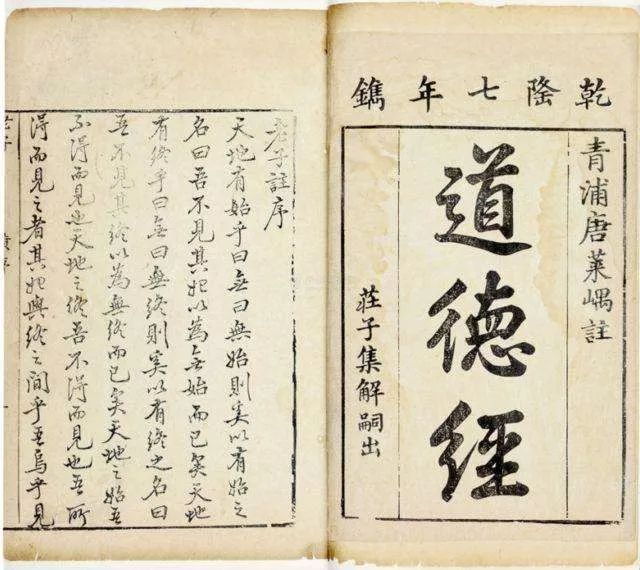 乾隆七年鐫
青浦唐菜嵎註
道德經
莊子集解嗣出
老子註序
天地有始乎曰無曰無始則奚以有始之
名曰吾不見其始以為無始而已矣天地
有終乎曰無曰無終則奚以有終之名曰
吾不見其終以為無終而已矣天地之始吾
不得而見也天地之終吾不得而見也吾所
得而見之者其始與終之間乎吾烏乎見